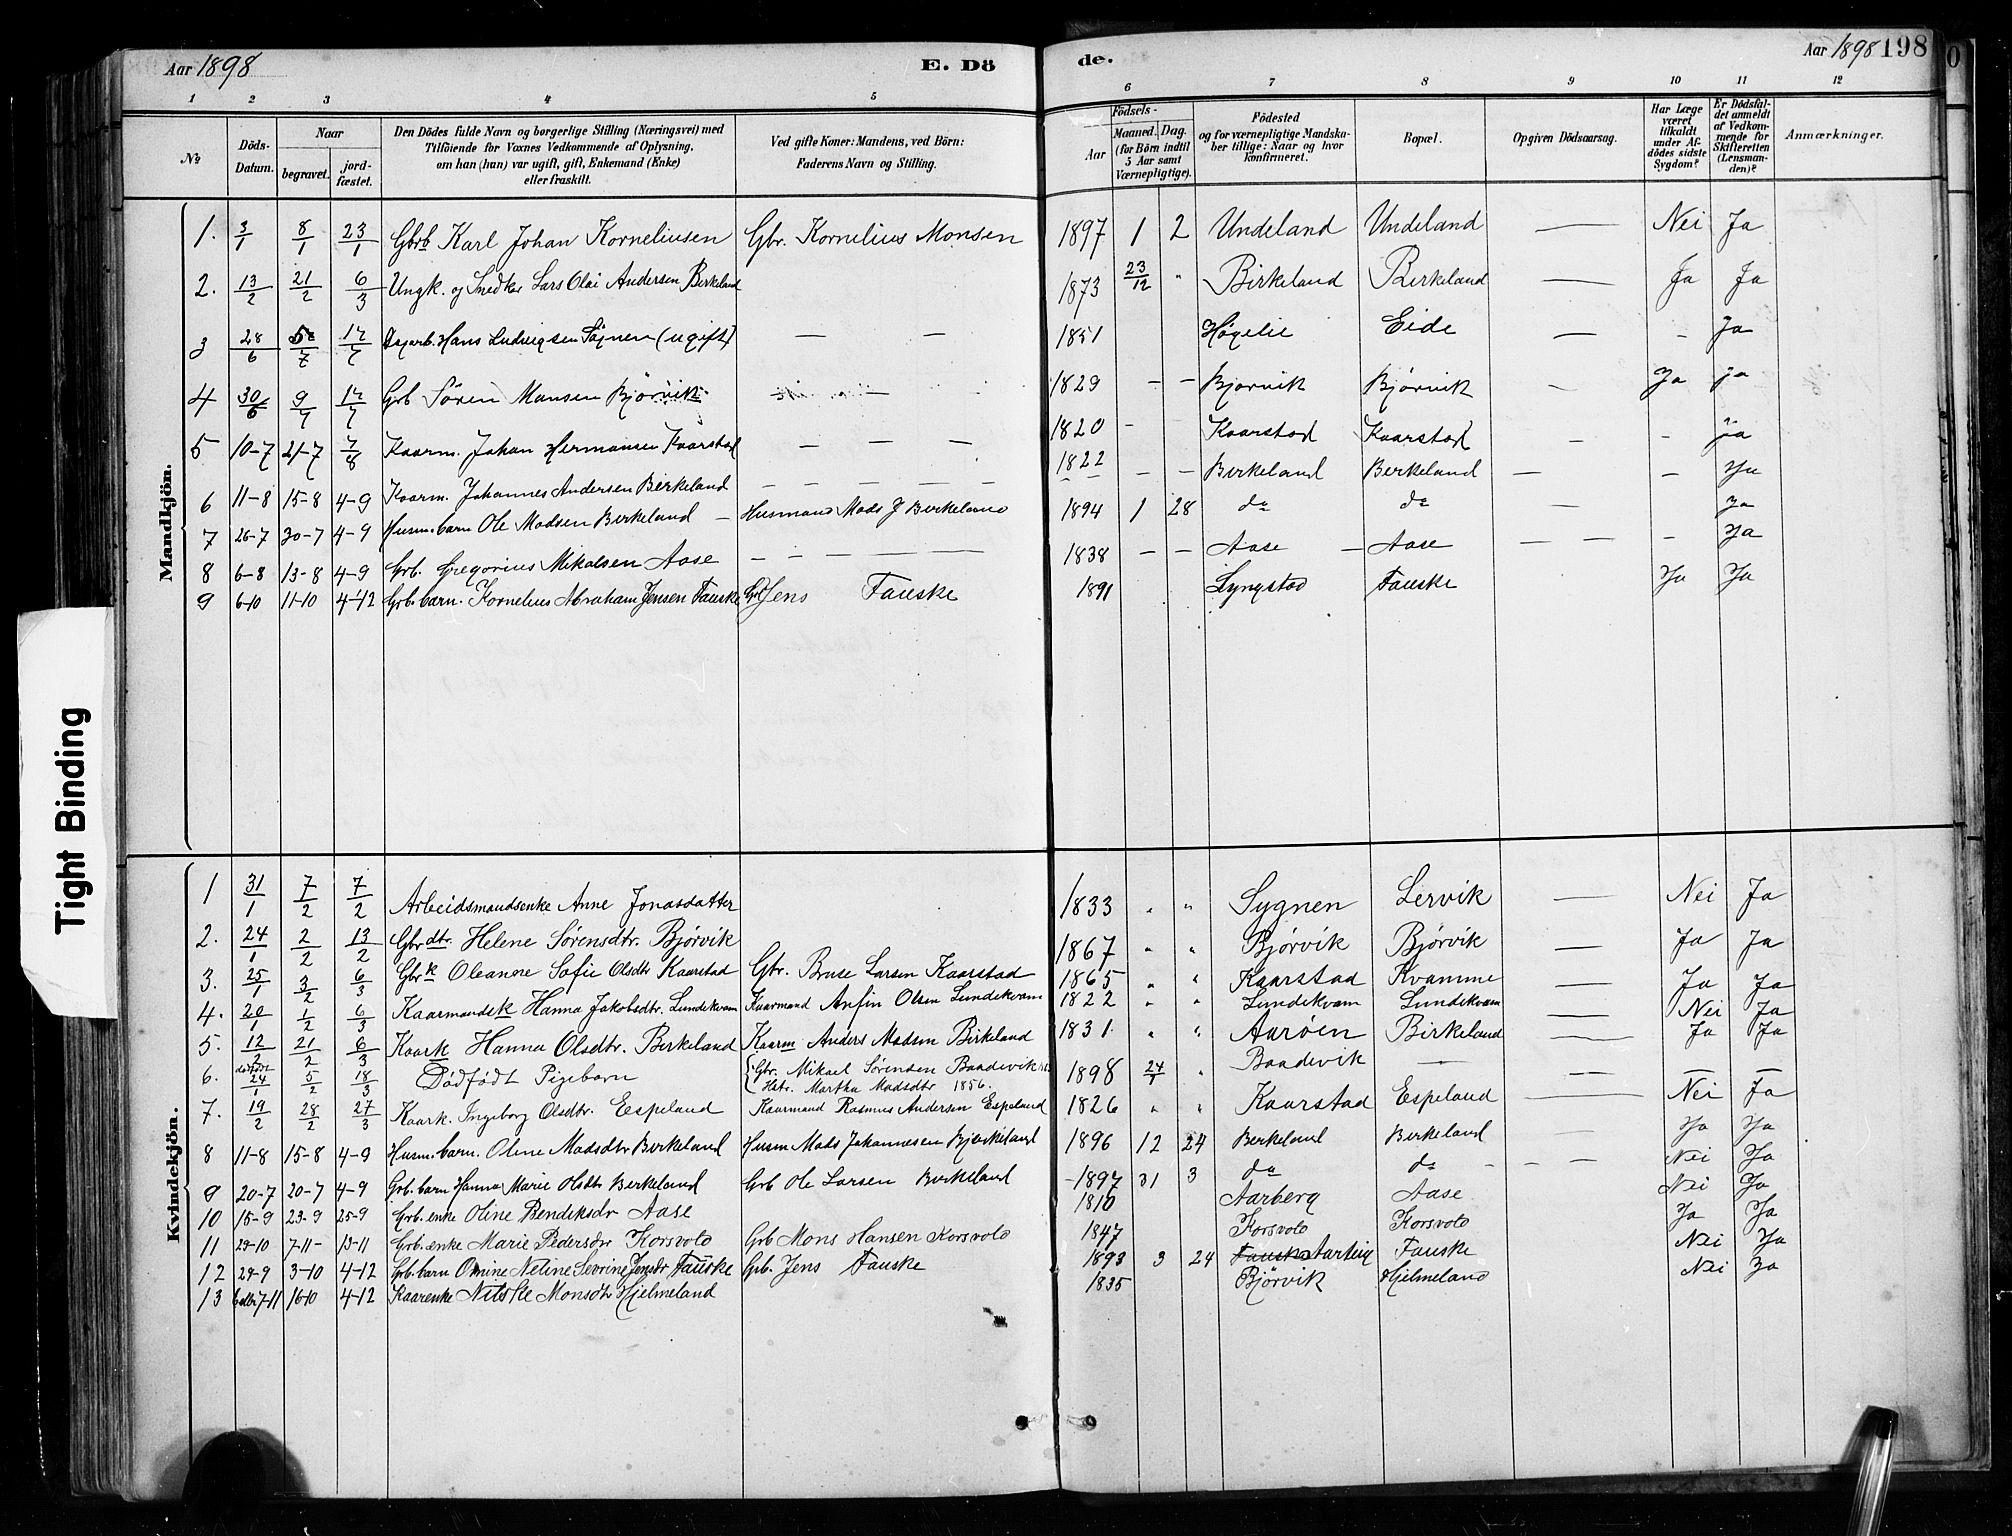 Aar 1898 E. Dö
de. Aar 1898 198
1 2 3 4 5
6 7 8 9 10 11 12
№ Döds-Datum. Naar begravet. jord-fæstet. Den Dödes fulde Navn og borgerlige Stilling (Næringsvei) med Tilföiende for Voxnes Vedkommende af Oplysning, om han (hun) var ugift, gift, Enkemand (Enke) eller fraskilt. Ved gifte Koner: Mandens, ved Börn: Faderens Navn og Stilling.
Födsels- Aar Maaned. Dag. (for Börn indtil 5 Aar samt Værnepligtige). Födested og for værnepligtige Mandskaber tillige: Naar og hvor konfirmeret. Bopæl. Opgiven Dödsaarsag. Har Læge været tilkaldt under Afdödes sidste Sygdom? Er Dödsfaldet anmeldt af Vedkommende for Skifteretten (Lensmanden)? Anmærkninger.
Mandkjön.
1. 3/1 8/1 23/1 Gbrb Karl Johan Korneliusen Gbr. Kornelius Monsen 1897 1 2 Undeland Undeland — Nei Ja
2. 13/2 21/2 6/3 Ungk. og Snedker Lars Olai Andersen Birkeland 1873 23/12 " Birkeland Birkeland — Ja Ja
3 28/6 /7 17/7 Hans Ludvigsen Sögnen (ugift) — — 1851 Høgelie Eide — - Ja
4 30/6 9/7 17/7 Grb Sören Monsen Bjørvik 1829 — — Bjørvik Bjørvik — Ja ja
5 10-7 21-7 7/8 Kaarm. Johan Hermansen Kaarstad — — — 1820 - Kaarstad Kaarstad - - ja
6 11-8 15-8 4-9 Kaarm. Johannes Andersen Birkeland — — — — — 1822 — — Birkeland Birkeland — — Ja
7 26-7 30-7 4-9 Husm. barn Ole Madsen Birkeland — Husmand Mads J Birkeland 1894 1 28 do do Ja
8 6-8 13-8 4-9 Grb. Gregorius Mikalsen Aase — — — — — 1838 — — Aase — Aase — — - Ja
9 6-10 11-10 4-12 Grb. barn. Kornelius Abraham Jensen Fauske Grb Jens Fauske 1891 Lyngstad Fauske Ja Ja
Kvindekjön.
1 31/1 7/2 7/2 Arbeidsmandsenke Anne Jonasdatter 1833 " " Sygnen Lervik — Nei Ja
2. 24/1 2/2 13/2 Gbrdtr. Helene Sørensdtr. Bjørvik 1867 " " Bjørvik Bjørvik — Ja Ja
3. 25/1 3/2 6/3 Gbrk Oleanne Sofie Olsdtr Kaarstad Gbr. Brase Larsen Kaarstad 1865 " " Kaarstad Kvamme — Ja Ja
4. 20/1 1/2 6/3 Kaarmandsk Hanna Jakobsdtr. Lundekvam Kaarmand Anfin Olsen Lundekvam 1822 " " Lundekvam Lundekvam — Nei Ja
5. 12/2 21/2 6/3 Kaark Hanna Olsdtr. Birkeland Kaarm Anders Madsen Birkeland 1831. " " Aarøen Birkeland — Ja Ja
6. dødfødt 24/1 5/2 18/3 Dödfödt Pigebarn Gbr. Mikael Sørensen Baadevik
Hstr. Martha Madsdtr 1856. 1898 24/1 " Baadevik — — — —
7. 19/2 28/2 27/3 Kaark. Ingeborg Olsdtr. Espeland Kaarmand Rasmus Andersen Espeland 1826 " " Kaarstad Espeland — Nei Ja
8 11-8 15-8 4-9 Husm. barn. Oline Madsdtr Birkeland Husm Mads Johannesen Birkeland 1896 12 24 Birkeland Birkeland — Ja Ja
9 20-7 20-7 4-9 Grb. barn Hanna Marie Olsdtr Birkeland Grb Ole Larsen Birkeland 1897 31 3 do do - - — Nei Ja
10 15-9 23-9 25-9 Grb. enke Oline Bendiksdr Aase 1810 Aarberg Aase Nei Ja
11 29-10 7-11- 13-11 Grb. enke Marie Pedersdtr Korsvoto Grb Mons Hansen Korsvoto 1847 Korsvoto Korsvoto Ja Ja
12 29-9 3-10 4-12 Grb. barn Omine Neline Sevrine Jensdtr Fauske Grb. Jens Fauske 1893 3 24 Fauske Fauske Nei Ja
13 16-10 4-12 Kaarenke Nilske Monsdtr Hjelmeland 1835 Bjørvik Hjelmeland Nei Ja
Tight Binding